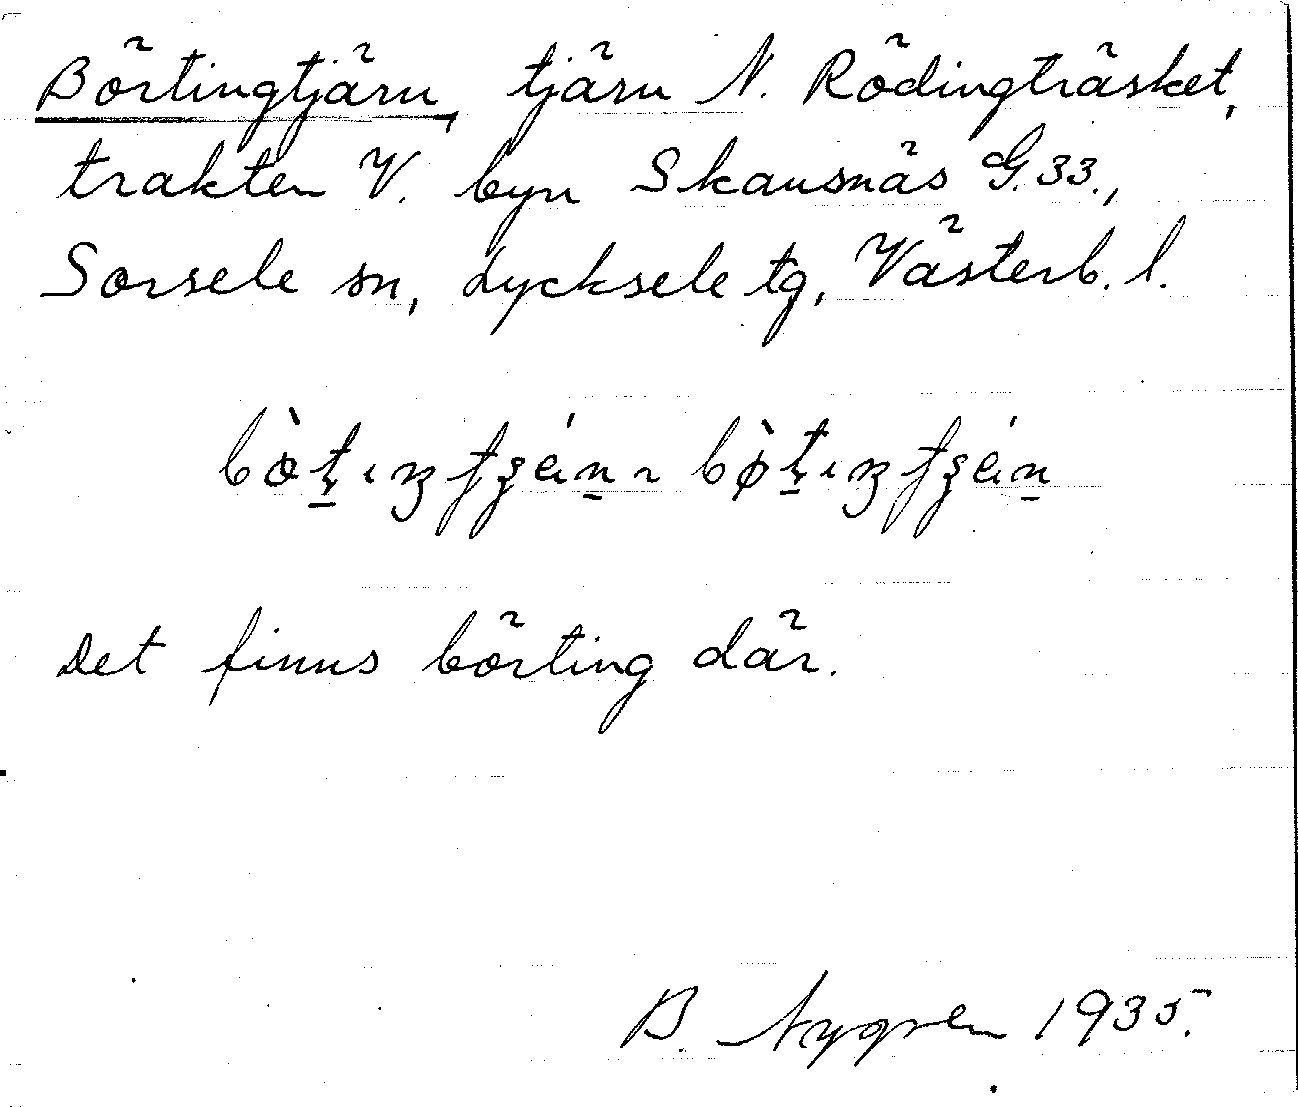 Börtingtjärn, tjärn N. Rödingträsket,
trakten V. byn Skansnäs G. 33.,
Sorsele sn, Lycksele tg, Västerb. l.
Det finns börting där.
B. Nygren 1935.